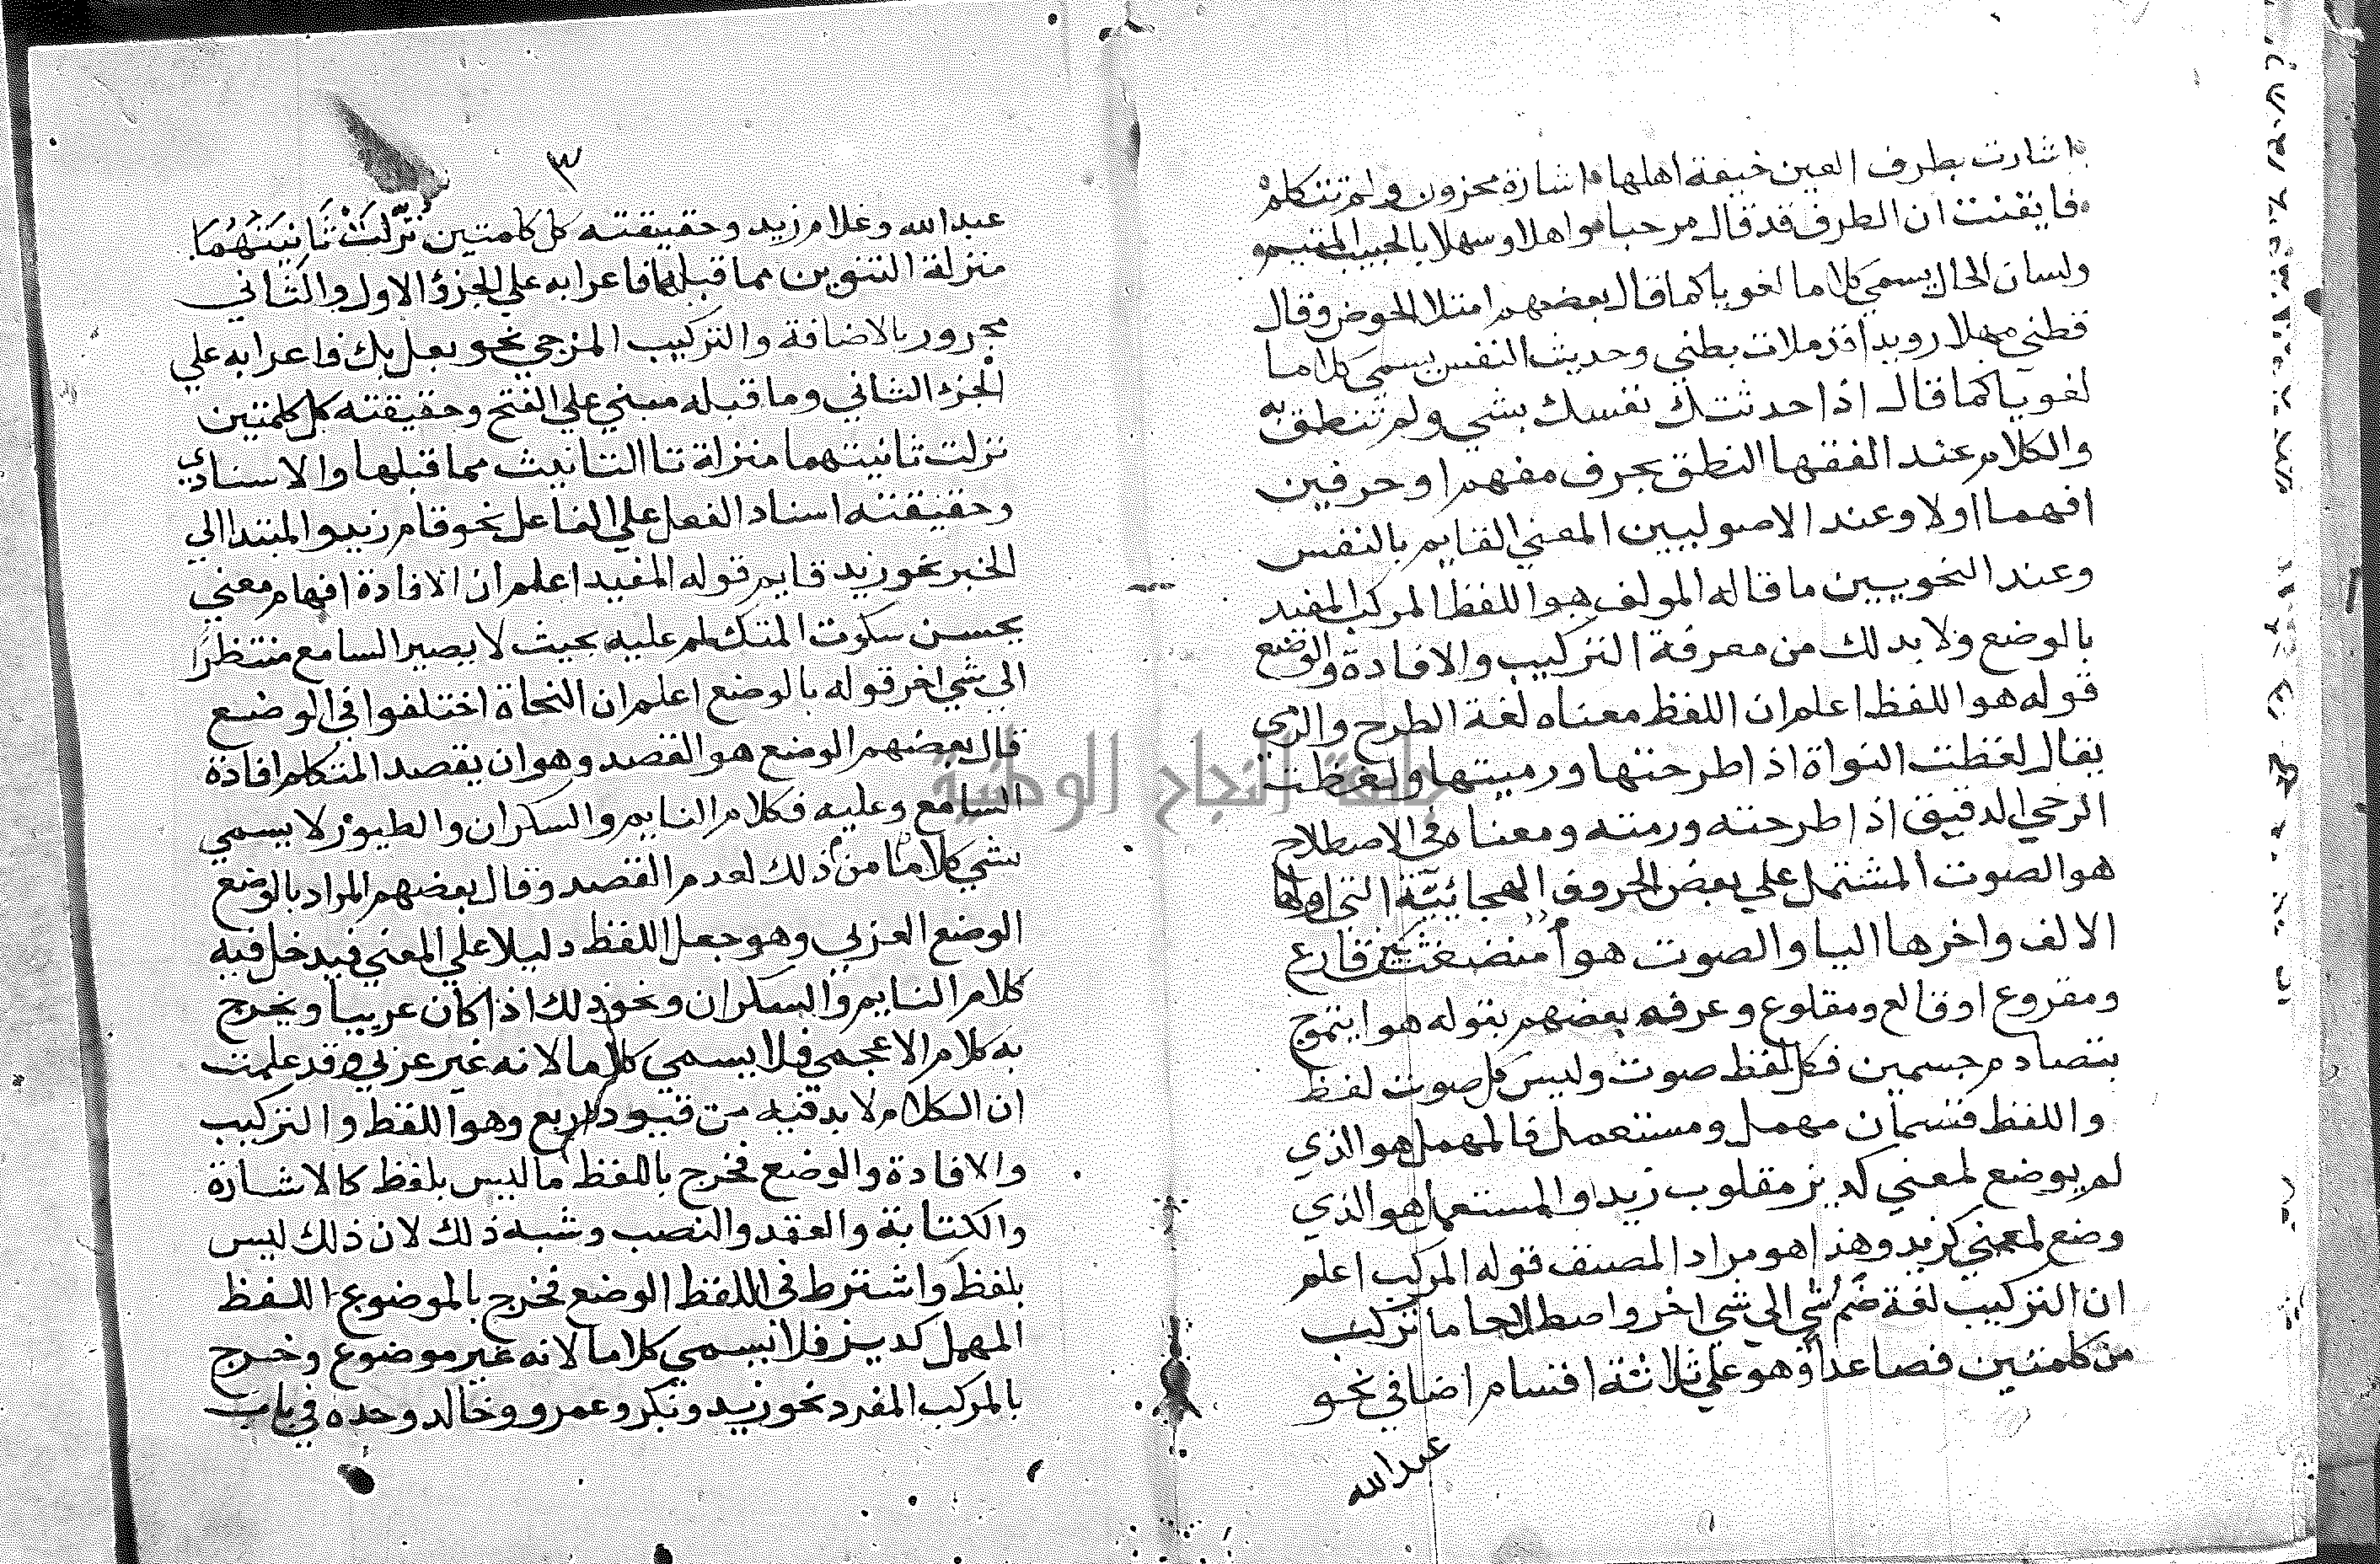 اشارت بطرف العين خيفة اهلها اشارة محزون ولم تتكلم
فايقنت ان الطرف قد قال مرحبا واهلا وسهلا بالحبيب المتيم
ولسان الحال يسمي كلاما لغويا كما قال بعضهم امتلا الحوض وقال
قطني مهلا رويدا قد ملات بطني وحديث النفس يسمي كلاما
لغويا كما قال اذا حدثتك نفسك بشي ولم تنطق به
والكلام عند الفقها النطق بحرف مفهم او حرفين
افهما اولا وعند الاصوليين المعني القايم بالنفس
وعند النحويين ما قاله المولف هو اللفظ المركب المفيد
بالوضع ولا بد لك من معرفة التركيب والافادة والوضع
قوله هو اللفظ اعلم ان اللفظ معناه لغة الطرح والرمي
يقال لفظت النواة اذ اطرحتها ورميتها ولفظت
الرخي الدقيق اذا طرحته ورمته ومعناه في الاصطلاح
هو الصوت المشتمل علي بعض الحروف الهجائيّة التي اولها
الالف واخرها اليا والصوت هوا منضغث بين قارع
ومقروع او قالع ومقلوع وعرفه بعضهم بقوله هوا يتموج
بتصادم جسمين فكل لفظ صوت وليس كل صوت لفظ
واللفظ قسمان مهمل ومستعمل فالمهمل هو الذي
لم يوضع لمعني كديز مقلوب زيد والمستعمل هو الذي
وضع لمعني كزيد وهذا هو مراد المصنف قوله المركب اعلم
ان التركيب لغة ضم شي الي شي اخر واصطلاحا ما تركب
من كلمتين فصاعدا وهو علي ثلاثة اقسام اضافي نحو
عبد الله
٣
عبد الله وغلام زيد وحقيقته كل كلمتين نُزّلَتْ ثَانِيَتهُمَا
منزلة التنوين مما قبلها فاعرابه علي الجزؤ الاول والثاني
مجرور بالاضافة والتركيب المزجي نحو بعل بك فاعرابه علي
الجزء الثاني وما قبله مبني علي الفتح وحقيقته كل كلمتين
نزلت ثانيتهما منزلة تا التانيث مما قبلها والاسنادي
وحقيقته اسناد الفعل علي الفاعل نحو قام زيد والمبتدا الي
الخبر نحو زيد قايم قوله المفيد اعلم ان الافادة افهام معني
يحسن سكوت المتكلم عليه بحيث لا يصير السامع منتظرًا
الي شي اخر قوله بالوضع اعلم ان النحاة اختلفوا في الوضع
قال بعضهم الوضع هو القصد وهو ان يقصد المتكلم افادة
السامع وعليه فكلام النايم والسكران والطيور لا يسمي
شي كلاما من ذلك لعدم القصد وقال بعضهم المراد بالوضع
الوضع العربي وهو جعل اللفظ دليلا علي المعني فيدخل فيه
كلام النايم والسكران ونحو ذلك اذا كان عربيا ويخرج
به كلام الاعجمي فلا يسمي كلاما لانه غير عربي وقد علمت
ان الكلام لا بد فيه من قيود اربع وهو اللفظ والتركيب
والافادة والوضع فخرج باللفظ ما ليس بلفظ كالاشارة
والكتابة والعقد والنصب وشبه ذلك لان ذلك ليس
بلفظ واشترط في اللفظ الوضع فخرج بالموضوع اللفظ
المهمل كديز فلا يسمي كلاما لانه غير موضوع وخرج
بالمركب المفرد نحو زيد وبكر وعمرو وخالد وحده في باب
جامعة النجاح الوطنية